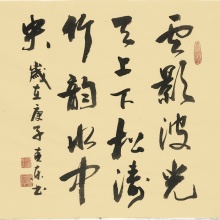 雲影波光
天上下松濤
竹韵水中
央
歲在庚子
書